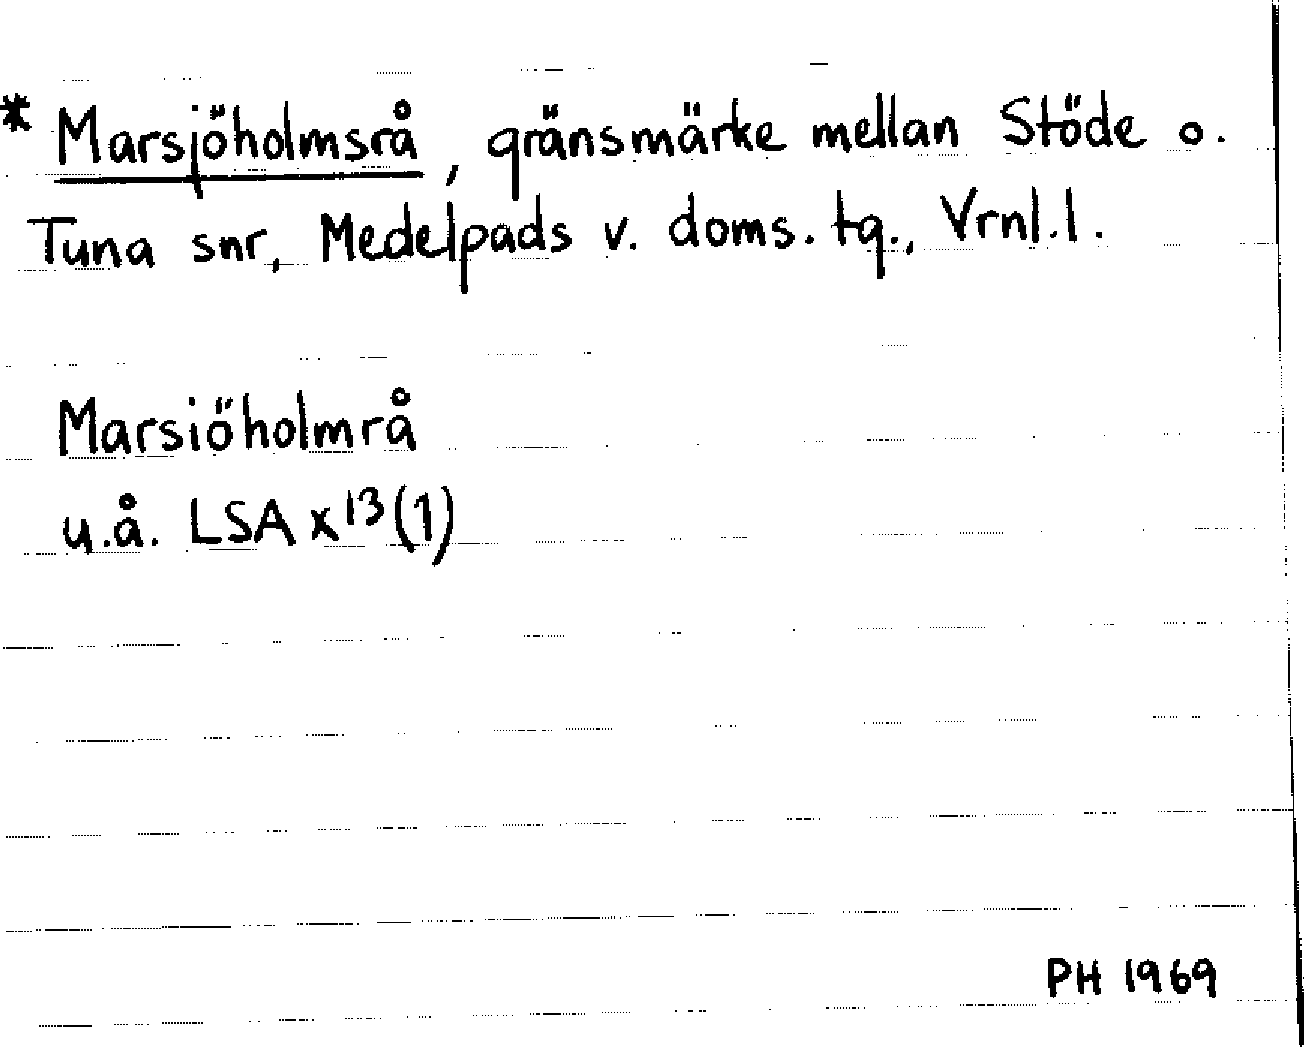 * Marsjöholmsrå, gränsmärke mellan Stöde o.
Tuna snr, Medelpads v. doms. tg., Vrnl.l.
Marsiöholmrå
u.å. LSA x¹³(1)
PH 1969